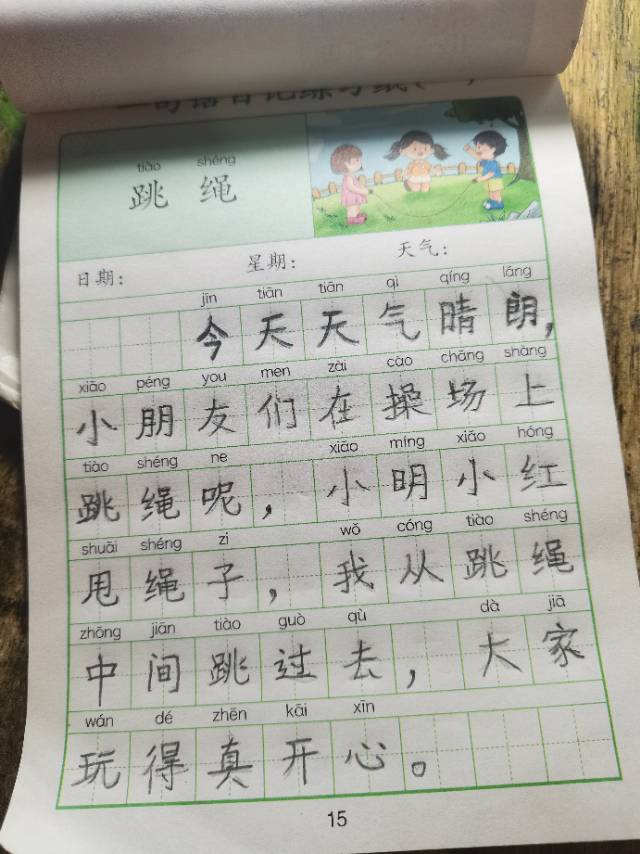 tiào shéng
跳 绳
日期： 星期： 天气：
jīn tiān tiān qì qíng lǎng
今天天气晴朗，
xiǎo péng you men zài cāo chǎng shàng
小朋友们在操场上
tiào shéng ne xiǎo míng xiǎo hóng
跳绳呢，小明小红
shuǎi shéng zi wǒ cóng tiào shéng
甩绳子，我从跳绳
zhōng jiān tiào guò qù dà jiā
中间跳过去，大家
wán dé zhēn kāi xīn
玩得真开心。
15